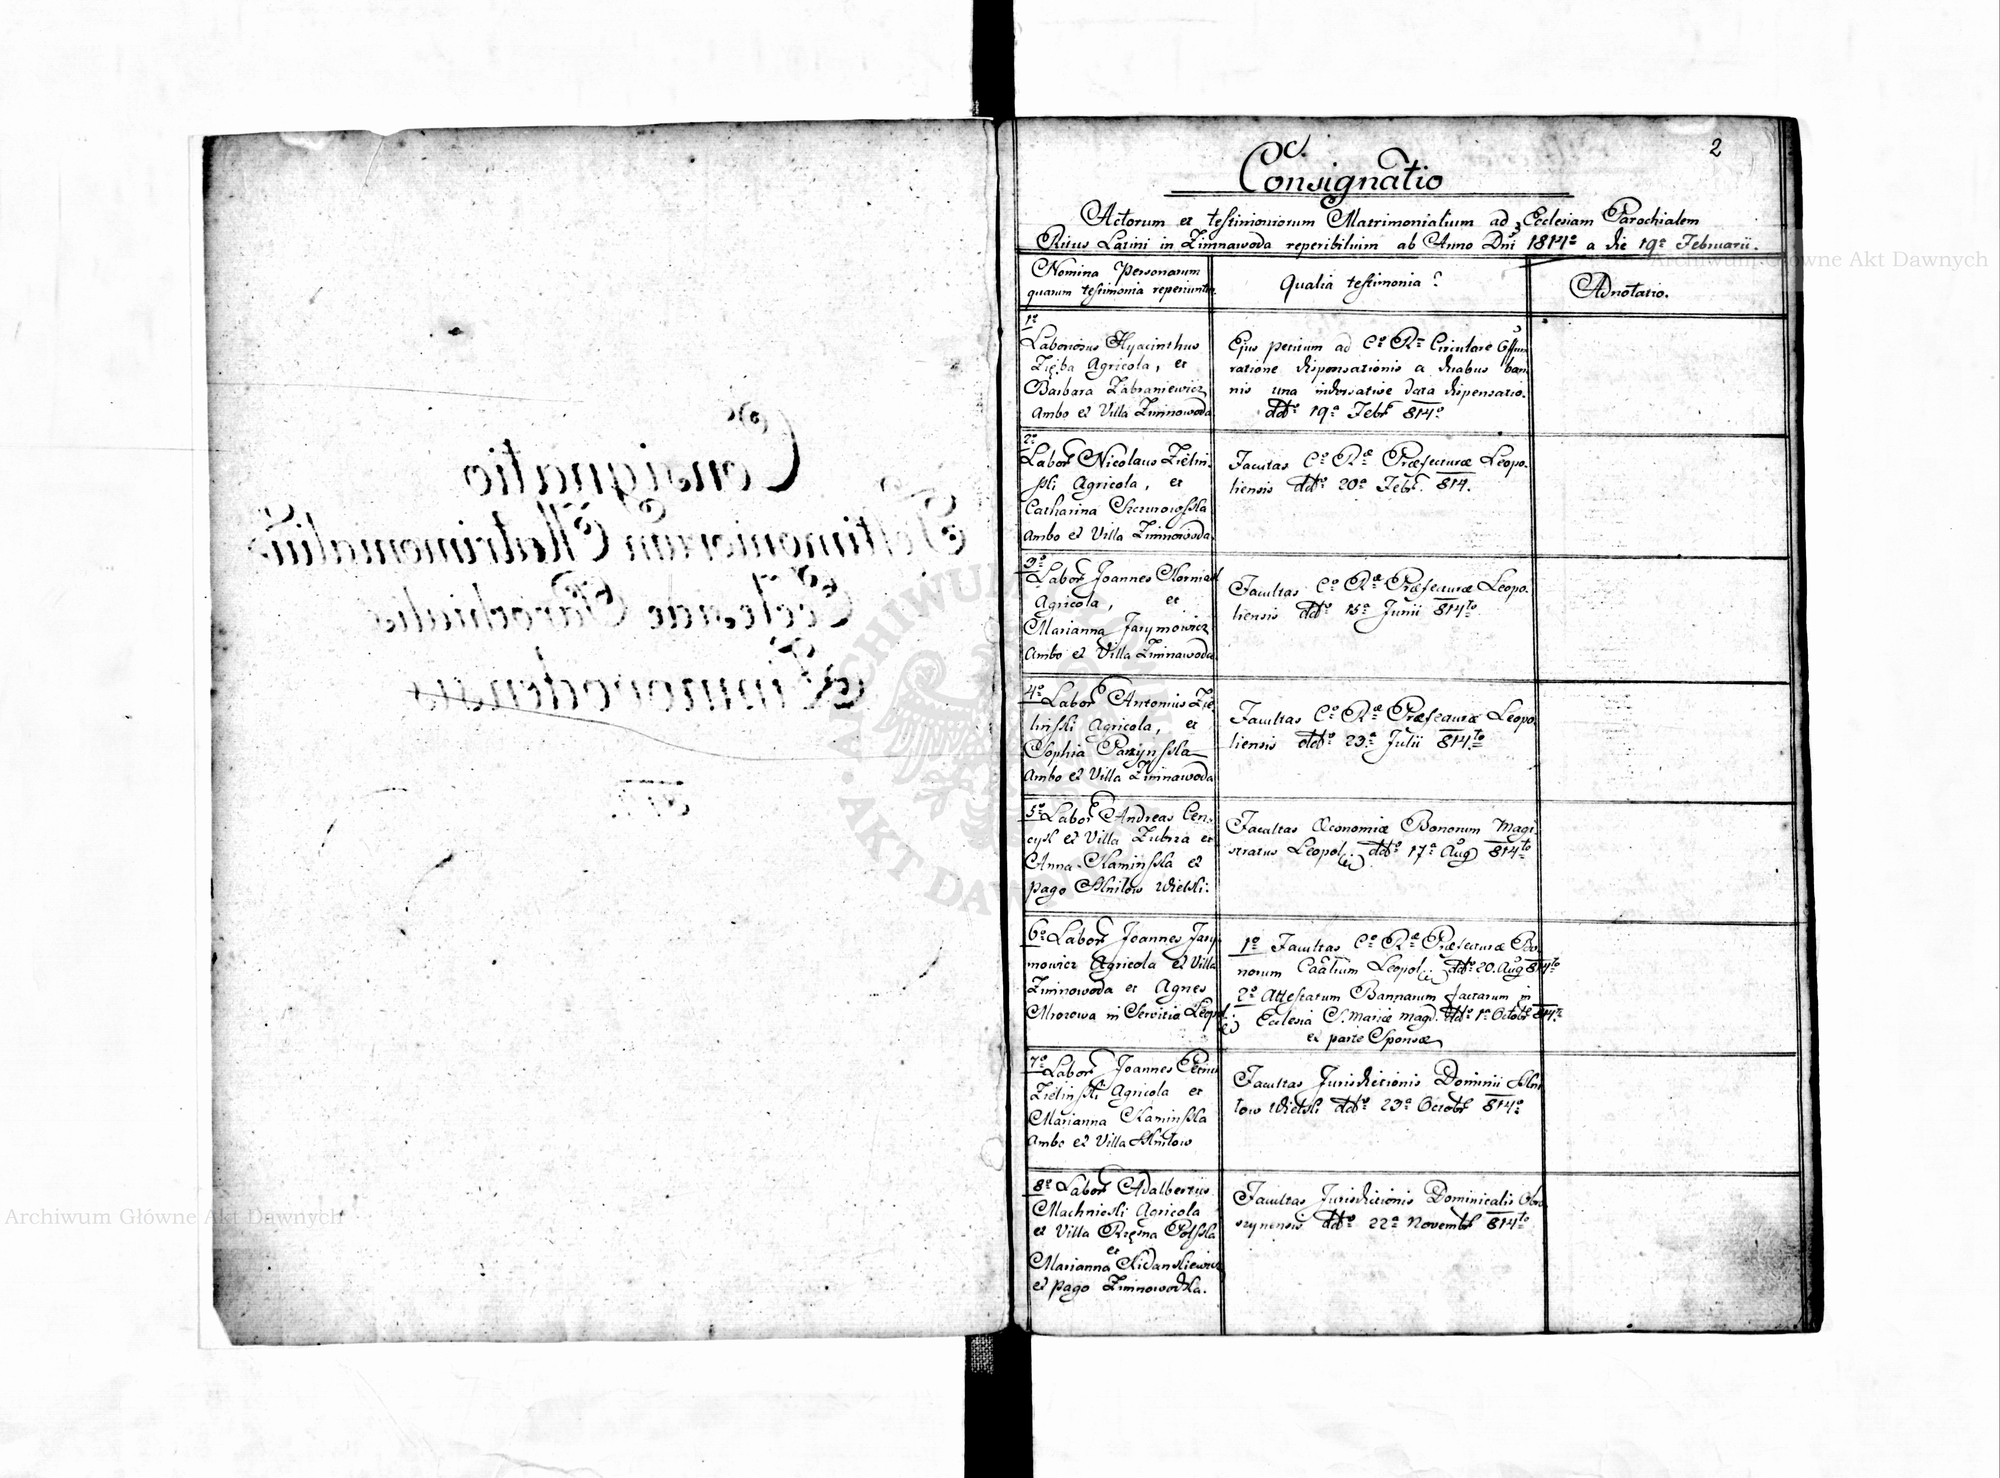 Consignatio
Testimoniorum Matrimonialiũ
Ecclesiae Parochialis
Zimnovodensis
2
C.
Consignatio
Actorum et testimoniorum Matrimonialium ad Ecclesiam Parochialem
Ritus Latini in Zimnawoda reperibilium ab Anno Dnî 1814º a die 19ª Februarii.
Nomina Personarum
quarum testimonia reperiuntur
Qualia testimonia?
Adnotatio.
1º
Laboriosus Hyacinthus
Zięba Agricola, et
Barbara Zabraniewicz
Ambo ex Villa Zimnowoda
Ejus petitum ad Cº Rm Circulare Offium
ratione dispensationis a duabus ban
nis una indorsative data dispensatio.
ddtº 19ª Febr 814º
2º
Labor Nicolaus Zielin
ski Agricola, et
Catharina Szczurowska
Ambo ex Villa Zimnowoda
Facultas Cº Rae Præfecturæ Leopo
liensis ddtº 20ª Febr. 814.
3º
Labor Joannes Korniak
Agricola, et
Marianna Jarymowicz
Ambo ex Villa Zimnawoda
Facultas Cº Rae Præfecturæ Leopo
liensis ddtº 15ª Junii 814to
4º Labor Antonius Zie
linski Agricola, et
Sophia Parzynska
Ambo ex Villa Zimnawoda
Facultas Cº Rae Præfecturæ Leopo
liensis ddtº 23ª Julii 814to
5º Labor Andreas Cen
cyk ex Villa Zubrza et
Anna Kaminska ex
pago Skniłow Wielki.
Facultas Œconomiæ Bonorum Magi
stratus Leopol: ddtº 17ª Aug 814to
6º Labor Joannes Jary
mowicz Agricola ex Villa
Zimnowoda et Agnes
Mrozowa in Servitio Leopol:
1º Facultas Cº Rae Præfecturæ Bo
norum Caâlium Leopol: ddtº 20. Aug 814to
2º Attestatum Bannarum factarum in
Ecclesia S. Mariæ Magd. ddtº 1ª Octobr 814to
ex parte Sponsæ
7º Labor Joannes Petrus
Zielinski Agricola et
Marianna Kaminska
Ambo ex Villa Skniłow
Facultas Jurisdictionis Dominii Skni
łow Wielki ddtº 23ª Octobr 814º
8º Labor Adalbertus
Machnicki Agricola
ex Villa Rzęsna Polska
et
Marianna Kidaskiewicz
ex pago Zimnowodka.
Facultas Jurisdictionis Dominicalis Obro
szynensis ddtº 22ª Novembr 814to
Archiwum Główne Akt Dawnych
Archiwum Główne Akt Dawnych
ARCHIWUM GŁÓWNE
AKT DAWNYCH